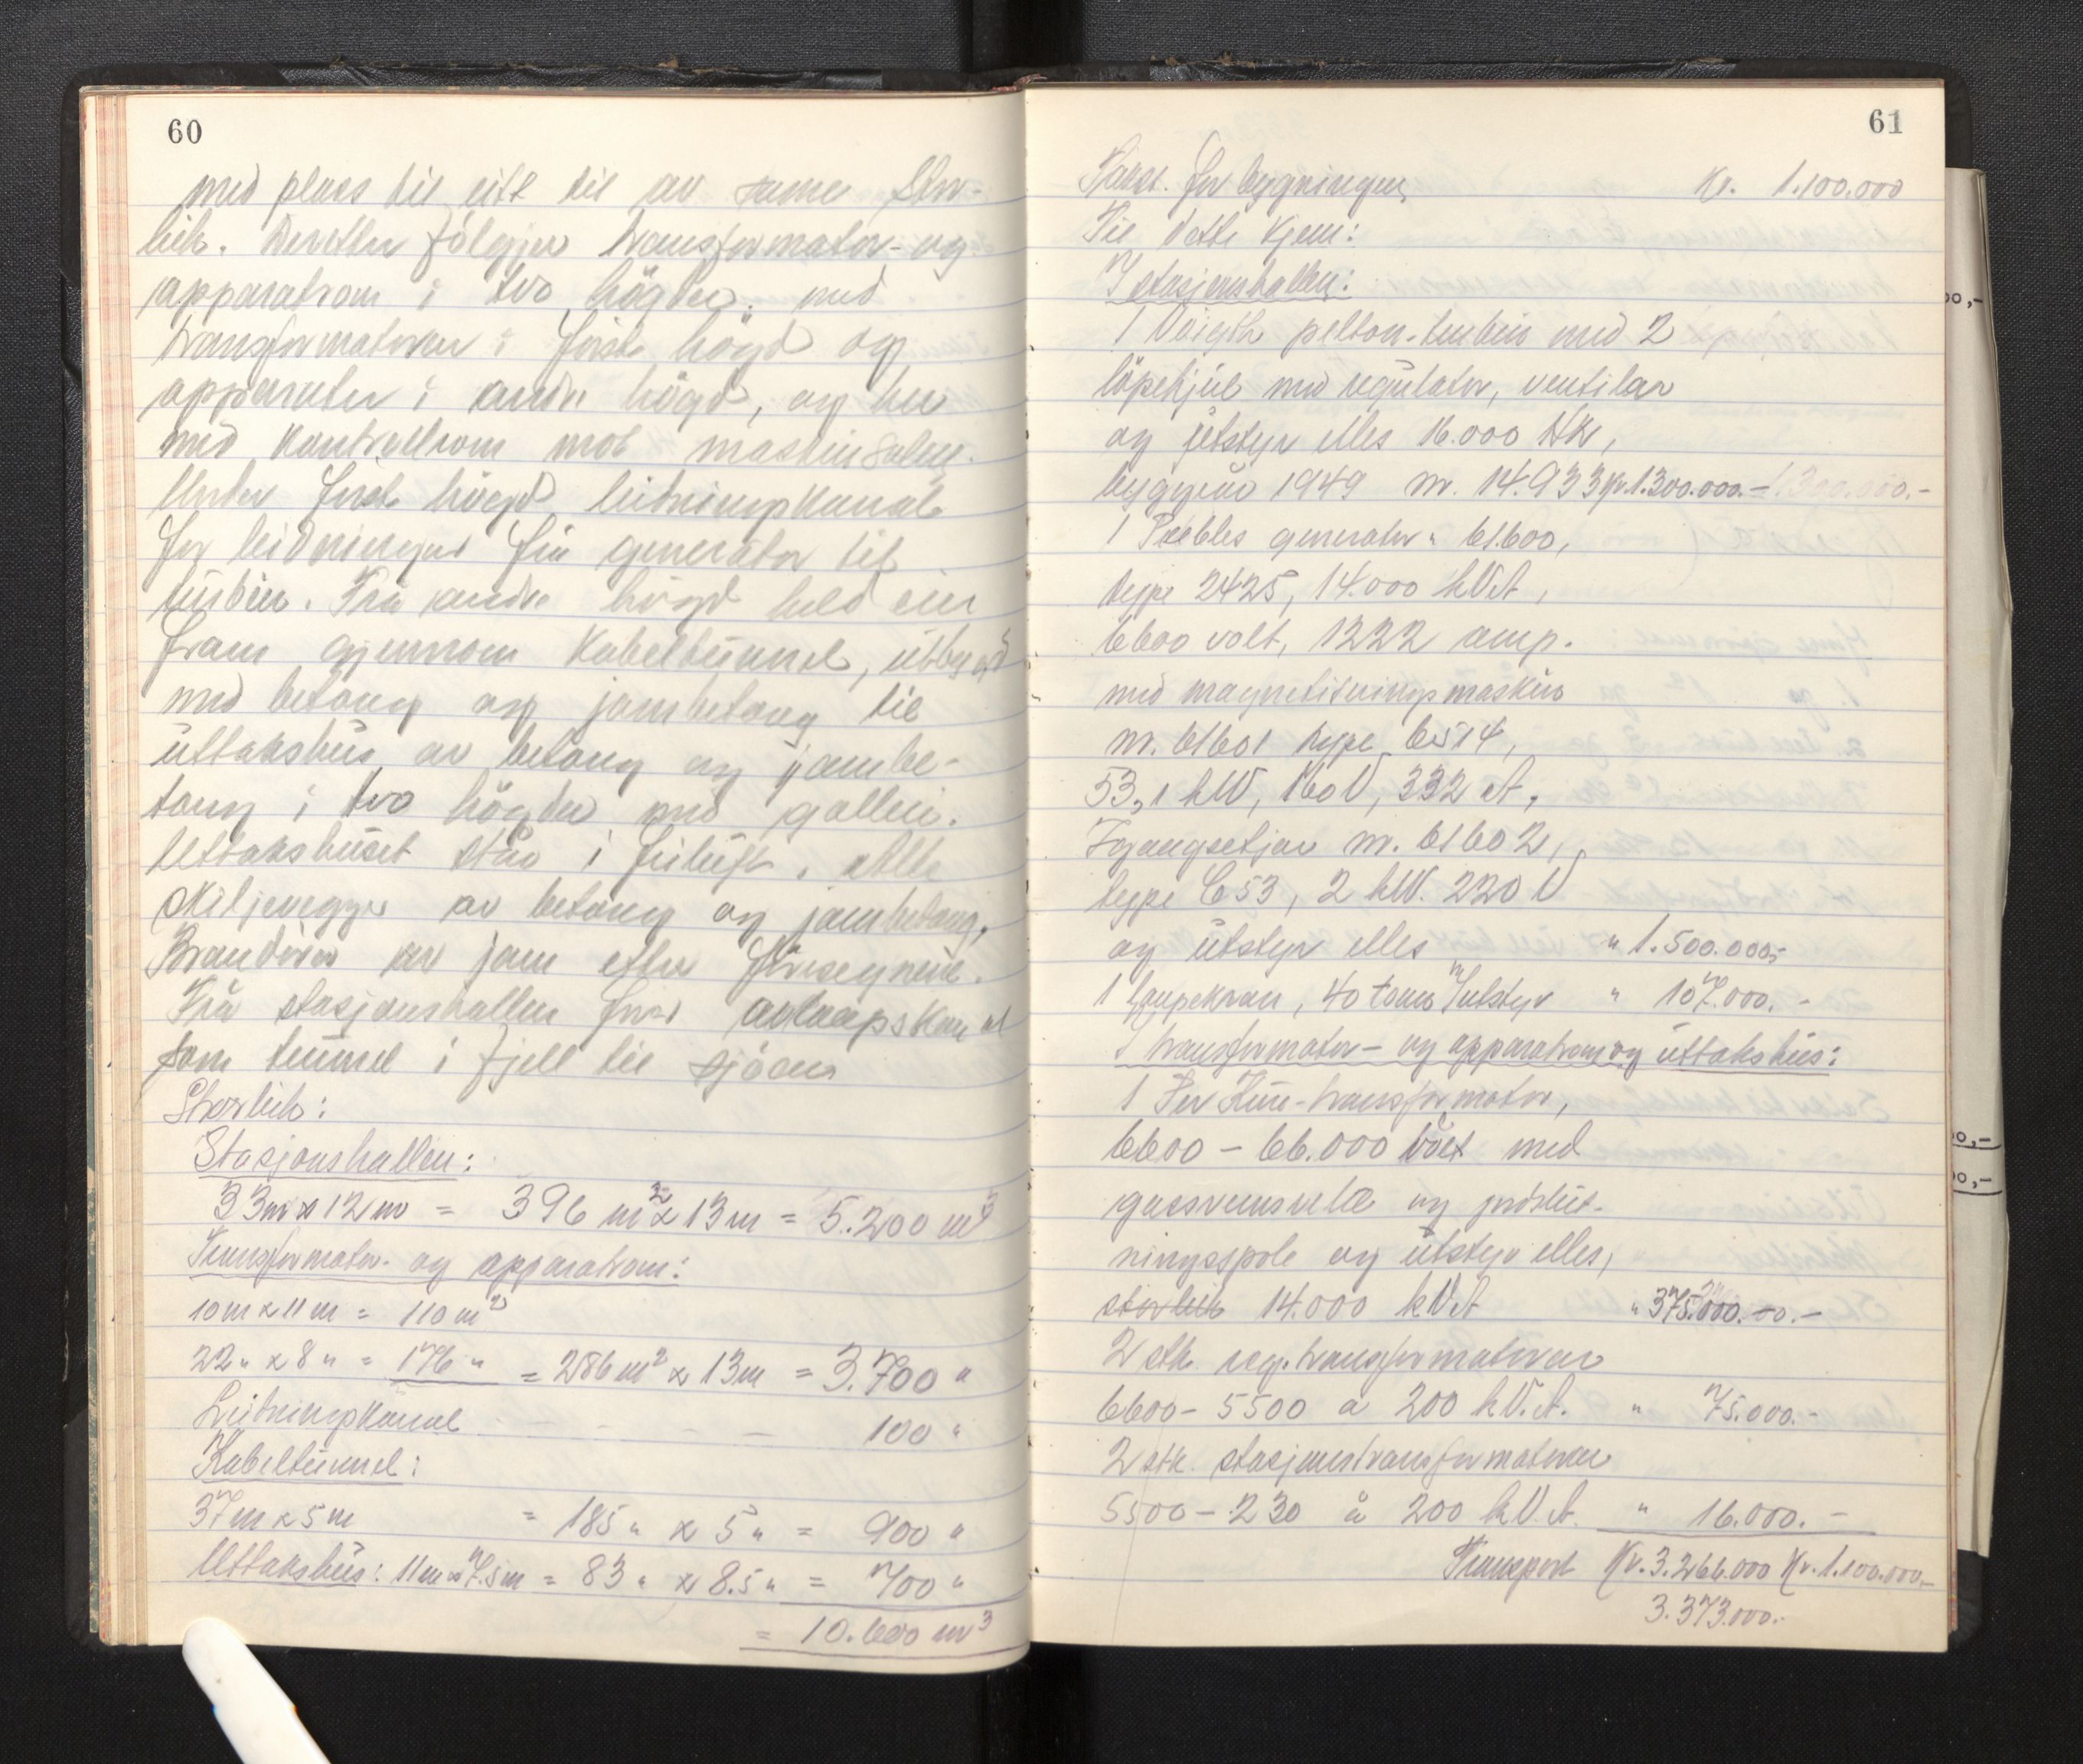 60
med plass til eitt til av same Stor-
leik. Deretter fölgjer transformator- og
apparatrom i tvo högder. med
transformatorar i första högd og
apparater i andre högd, og her
med kontrollrom mot maskinsalen.
Under første högd leidningskanal
for leidningar frå generator til
turbin. Frå andre högd held ein
fram gjennom kabeltunnel, utbygd
med betong og jarnbetong til
uttakshus av betong og jarnbe-
tong i tvo högder med galleri.
Uttakshuset står i friluft. Alle
skiljevegger av betong og jarnbetong.
Branddører av jarn etter föresegnene.
Frå stasjonshallen förer avlaupskanal
som tunnel i fjell til sjöen
Storleik:
Stasjonshallen:
33m x 12m = 396 m² x 13m = 5.200 m³
Transformator- og apparatrom:
10m x 11m = 110 m²
22 " x 8 " = 176 " = 286 m² x 13m = 3.700 "
Leidningskanal - - - - 100 "
Kabeltunnel:
37m x 5m = 185 " x 5 " = 900 "
Uttakshus: 11m x 7.5m = 83 " x 8.5 " = 700 "
= 10.600 m³
61
Takst. for bygningen Kr. 1.100.000
Til dette kjem:
I stasjonshallen:
1 Voigth pelton-turbin med 2
löpehjul med regulator, ventilar
og utstyr elles 16.000 HK,
byggeår 1949 nr. 14.933 kr. 1.300.000.- 1.300.000.-
1 Peebles generator " 61600,
type 2425, 14.000 kVA,
6600 volt, 1222 amp.
med magnetiseringsmaskin
nr. 61601 type 6514,
53,1 kW, 160 V, 332 A,
Igangsetjar nr. 61602,
type C53, 2 kW. 220 V
og utstyr elles " 1.500.000,-
1 Laupekran, 40 tonns m/utstyr " 107.000.-
I transformator- og apparatrom og uttakshus:
1 Per Kure-transformator,
6600 - 66.000 volt med
gassvernrelé og jordslut-
ningsspole og utstyr elles,
storleik 14.000 kVA " 375.000.-
2 stk reg.transformatorar
6600 - 5500 a 200 kV.A. " 75.000.-
2 stk. stasjonstransformatorar
5500 - 230 à 200 kV.A. " 16.000.-
Transport Kr. 3.266.000 Kr. 1.100.000,-
3.373.000.-
00,-
00,-
00,-